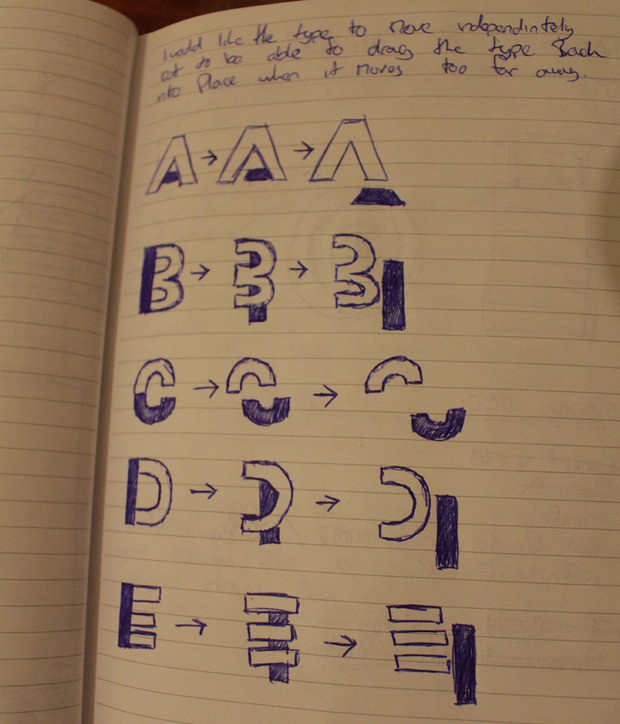 I would like the type to move independintely
but to be able to drag the type back
into place when it moves too far away.
A → A → A
B → B → B
C → C → C
D → D → D
E → E → E